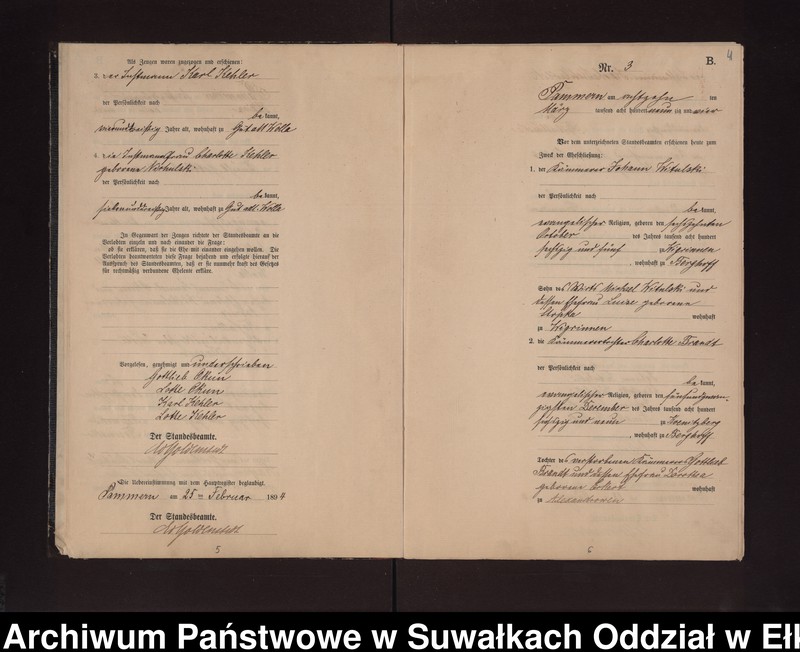 Als Zeugen waren zugezogen und erschienen:
3. der Instmann Karl Kehler
der Persönlichkeit nach
bekannt,
vierunddreißig Jahre alt, wohnhaft zu Gut alt Kölla
4. die Instmannfrau Charlotte Kehler
geborene
der Persönlichkeit nach
bekannt,
siebenunddreißig Jahre alt, wohnhaft zu Gut alt Kölla
In Gegenwart der Zeugen richtete der Standesbeamte an die
Verlobten einzeln und nach einander die Frage:
ob sie erklären, daß sie die Ehe mit einander eingehen wollen. Die
Verlobten beantworteten diese Frage bejahend und erfolgte hierauf der
Ausspruch des Standesbeamten, daß er sie nunmehr kraft des Gesetzes
für rechtmäßig verbundene Eheleute erkläre.
Vorgelesen, genehmigt und unterschrieben
Gottlieb Okun
Lotte Okun
Karl Kehler
Lotte Kehler
Der Standesbeamte.
Die Uebereinstimmung mit dem Hauptregister beglaubigt.
Pammern am 25ten Februar 1894
Der Standesbeamte.
5
4
B.
Nr. 3
Pammern am achtzehn ten
März tausend acht hundert neunzig und vier
Vor dem unterzeichneten Standesbeamten erschienen heute zum
Zweck der Eheschließung:
1. der Kämmerer Johann Kitulski
der Persönlichkeit nach
bekannt,
evangelischer Religion, geboren den sechszehnten
October des Jahres tausend acht hundert
sechzig und fünf zu Kigrinnen
, wohnhaft zu Berghoff
Sohn des Wirts Michael Kitulski und
dessen Ehefrau Luize geborene
wohnhaft
zu Kigrinnen
2. die Kämmerertochter Charlotte Brandt
der Persönlichkeit nach
bekannt,
evangelischer Religion, geboren den fünfundzwan-
zigsten Dezember des Jahres tausend acht hundert
sechzig und neun zu
, wohnhaft zu Berghoff
Tochter des verstorbenen Kämmerers Gottlieb
Brandt und dessen Ehefrau
geborene wohnhaft
zu
6
Archiwum Państwowe w Suwałkach Oddział w Ełk